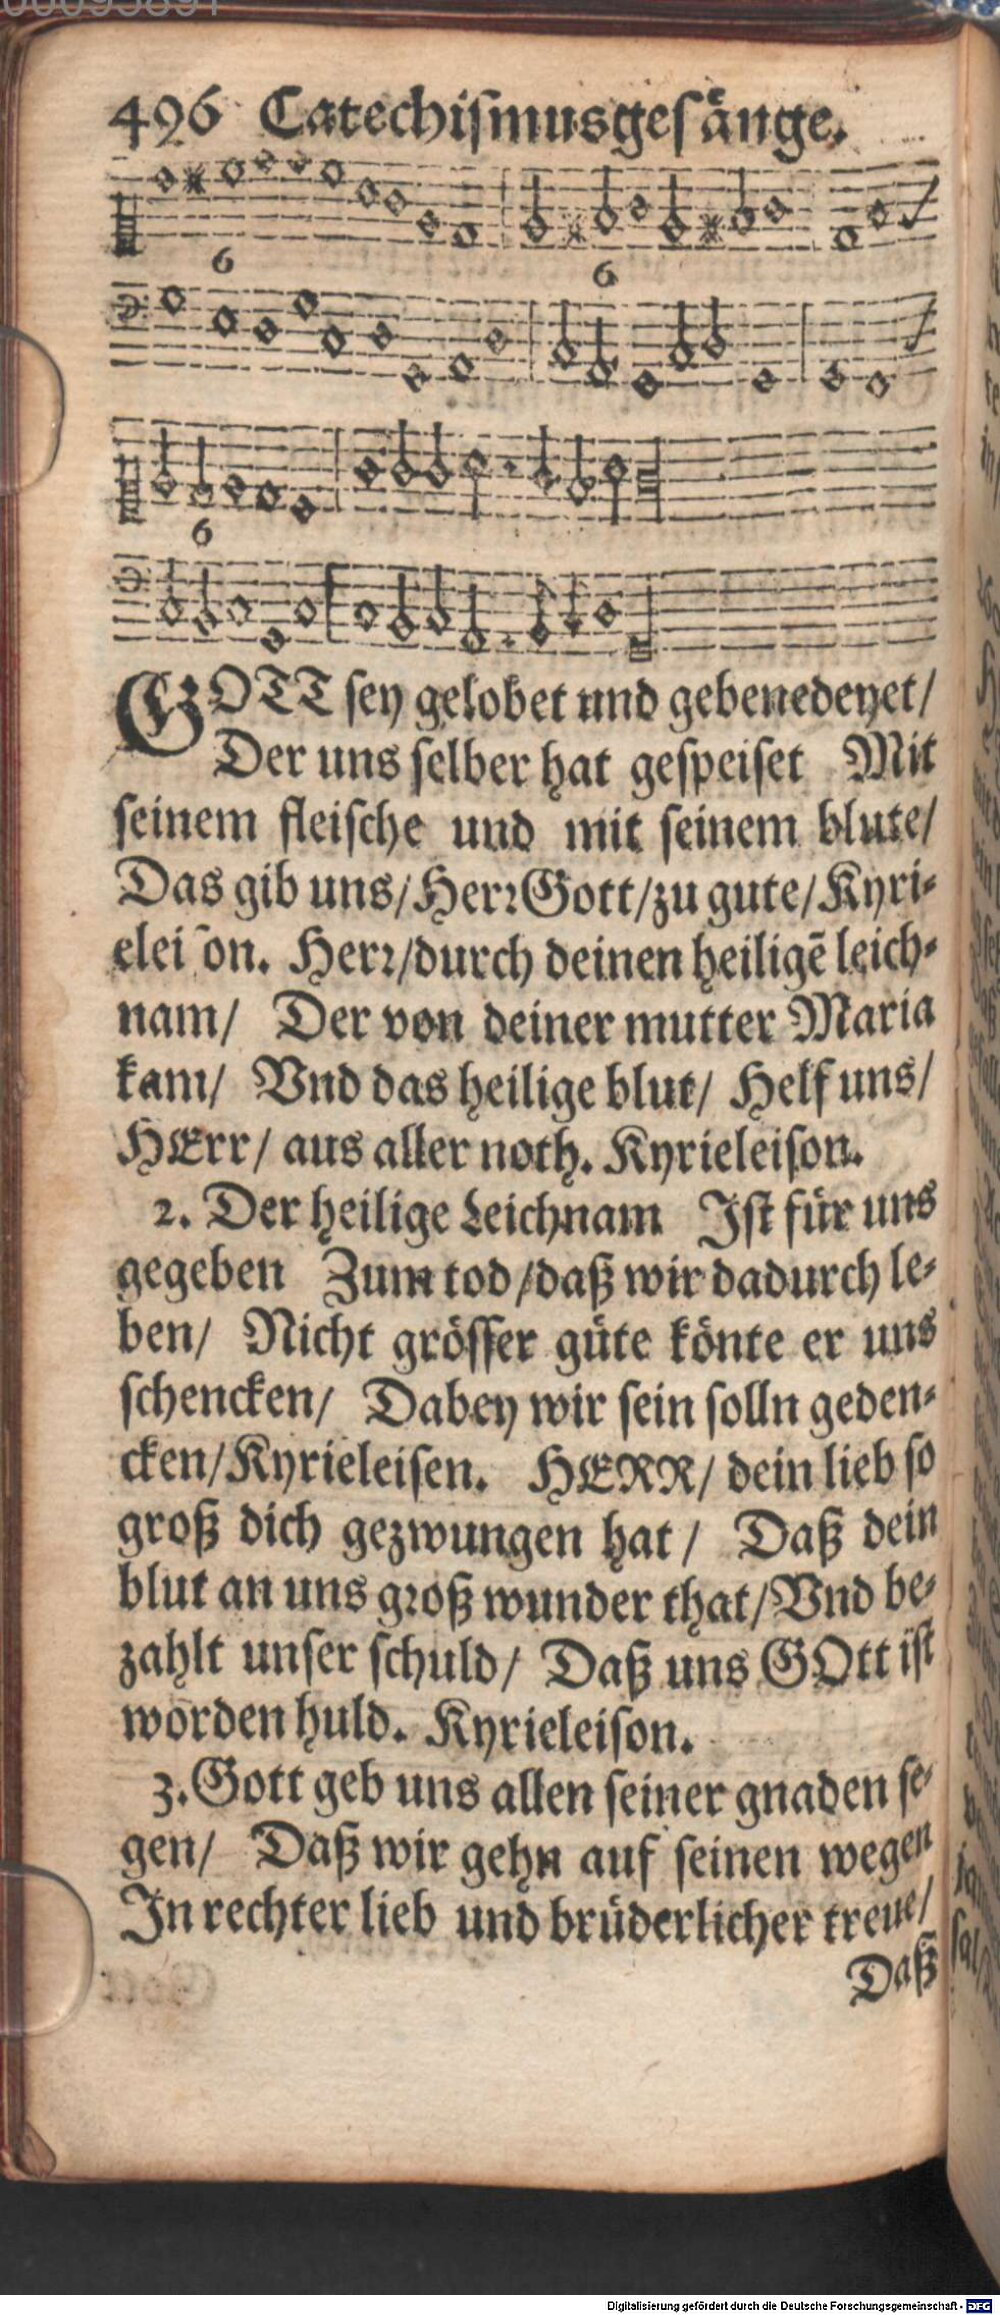 496 Catechiſmusgeſänge.
6
6
6
GOTT ſey gelobet und gebenedeyet/
Der uns ſelber hat geſpeiſet Mit
ſeinem fleiſche und mit ſeinem blute/
Das gib uns/Herꝛ Gott/zu gute/Kyri-
eleiſon. Herꝛ/durch deinen heiligē leich-
nam/ Der von deiner mutter Maria
kam/ Vnd das heilige blut/ Helf uns/
HErr/ aus aller noth. Kyrieleiſon.
2. Der heilige Leichnam Iſt für uns
gegeben Zum tod/daß wir dadurch le-
ben/ Nicht gröſſer güte könte er uns
ſchencken/ Dabey wir ſein ſolln geden-
cken/Kyrieleiſen. HERR/ dein lieb ſo
groß dich gezwungen hat/ Daß dein
blut an uns gꝛoß wunder that/Vnd be-
zahlt unſer ſchuld/ Daß uns GOtt iſt
worden huld. Kyrieleiſon.
3. Gott geb uns allen ſeiner gnaden ſe-
gen/ Daß wir gehn auf ſeinen wegen
In rechter lieb und brüderlicher treue/
Daß
Digitalisierung gefördert durch die Deutsche Forschungsgemeinschaft - DFG